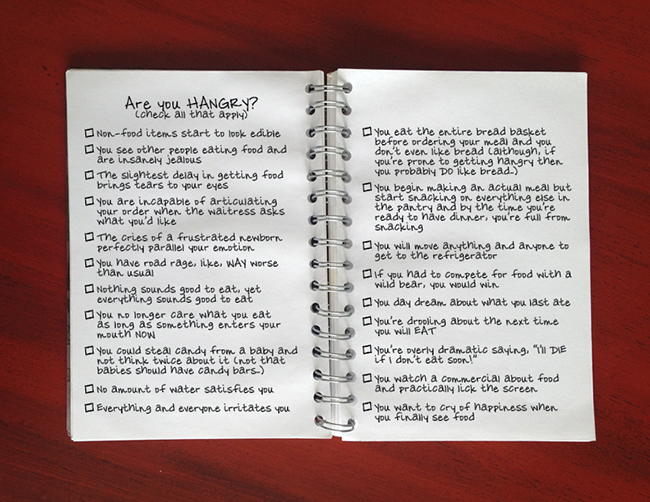 Are you HANGRY?
(check all that apply)
Non-food items start to look edible
You see other people eating food and
are insanely jealous
The slightest delay in getting food
brings tears to your eyes
You are incapable of articulating
your order when the waitress asks
what you'd like
The cries of a frustrated newborn
perfectly parallel your emotion
You have road rage, like, WAY worse
than usual
Nothing sounds good to eat, yet
everything sounds good to eat
You no longer care what you eat
as long as something enters your
mouth NOW
You could steal candy from a baby and
not think twice about it (not that
babies should have candy bars...)
No amount of water satisfies you
Everything and everyone irritates you
You eat the entire bread basket
before ordering your meal and you
don't even like bread (although, if
you're prone to getting hangry then
you probably DO like bread...)
You begin making an actual meal but
start snacking on everything else in
the pantry and by the time you're
ready to have dinner, you're full from
snacking
You will move anything and anyone to
get to the refrigerator
If you had to compete for food with a
wild bear, you would win
You day dream about what you last ate
You're drooling about the next time
you will EAT
You're overly dramatic saying, "I'll DIE
if I don't eat soon!"
You watch a commercial about food
and practically lick the screen
You want to cry of happiness when
you finally see food